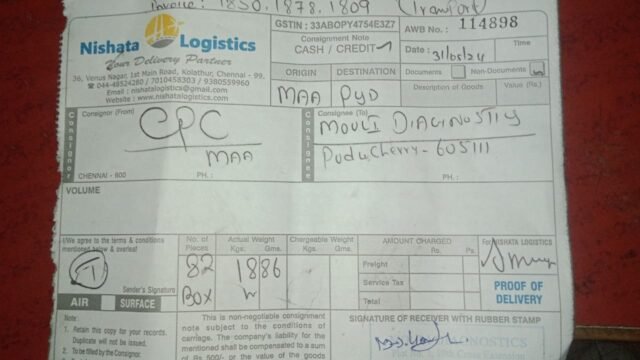 Invoice: 1850, 1878, 1809 (Transport)
Nishata Logistics
Your Delivery Partner
36, Venus Nagar, 1st Main Road, Kolathur, Chennai - 99.
044-48524280 / 7010458303 / 9380559960
Email : nishatalogistics@gmail.com
Website : www.nishatalogistics.com
GSTIN : 33ABOPY4754E3Z7
Consignment Note
CASH / CREDIT
AWB No. : 114898
Date : 31/05/24
Time
ORIGIN DESTINATION
MAA PYD
Documents Non-Documents
Description of Goods Value (Rs.)
Consignor
Consignor (From)
CPC
MAA
CHENNAI - 600 PH. :
Consignee
Consignee (To)
MOULI DIAGINOSTIY
Puducherry - 605111
PH. :
VOLUME
I/We agree to the terms & conditions
mentioned below & overleaf
Sender's Signature
AIR SURFACE
No. of Pieces
82
BOX
Actual Weight
Kgs. Gms.
1886
Chargeable Weight
Kgs. Gms.
AMOUNT CHARGED Rs. Ps.
Freight
Service Tax
Total
For NISHATA LOGISTICS
PROOF OF
DELIVERY
Note :
1. Retain this copy for your records.
Duplicate will not be issued.
2. To be filled by the Consignor.
This is non-negotiable consignment
note subject to the conditions of
carriage. The company's liability for
mentioned shall be compensated to a sum
of Rs 500/- or the value of the goods
SIGNATURE OF RECEIVER WITH RUBBER STAMP